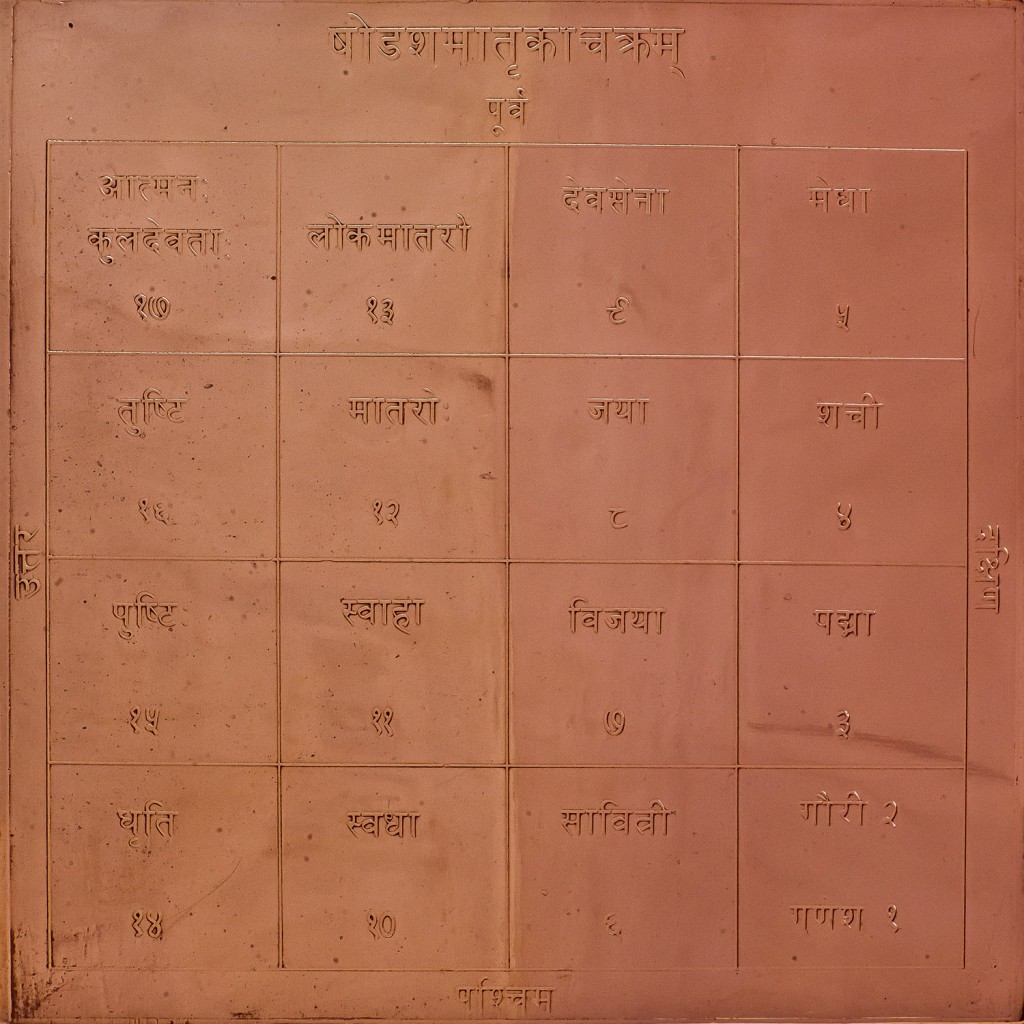 षोडशमातृकाचक्रम्
पूर्व
आत्मनः
कुलदेवताः
१७
लोकमातरो
१३
देवसेना
९
मेधा
५
तुष्टिः
१६
मातरोः
१२
जया
८
शची
४
उत्तर
दक्षिण
पुष्टिः
१५
स्वाहा
११
विजया
७
पद्मा
३
धृति
१४
स्वधा
१०
सावित्री
६
गौरी २
गणश १
पश्चिम